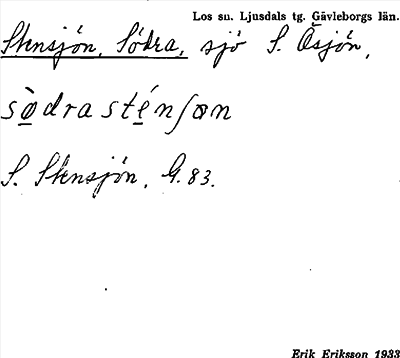 Los sn. Ljusdals tg. Gävleborgs län.
Stensjön, Södra, sjö S. Ösjön,
sö̀drasténʃøn
S. Stensjön, G. 83.
Erik Eriksson 1933